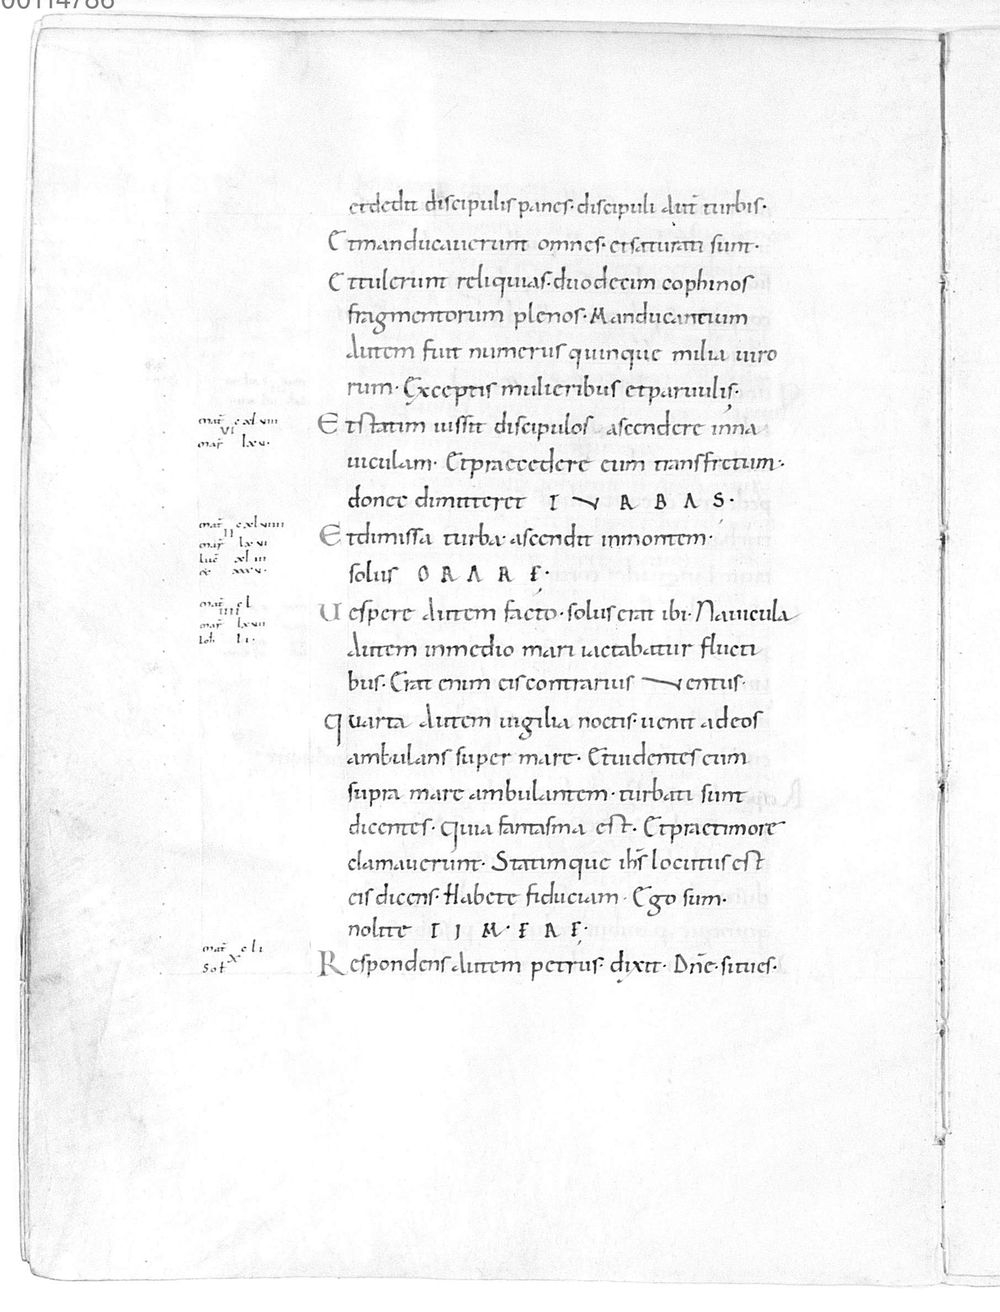 00114786
et dedit discipulis panes· discipuli aut̄ turbis·
Et manducauerunt omnes· et saturati sunt·
Et tulerunt reliquias· duodecim cophinos
fragmentorum plenos· Manducantium
autem fuit numerus quinque milia uiro
rum· Exceptis mulieribus et paruulis·
mat̄ cxlviii
vi
mar̄ lxv·
Et statim iussit discipulos ascendere in na
uiculam· Et praecedere eum transfretum·
donec dimitteret TVRBAS·
mat̄ cxlviiii
ii
mar̄ lxvi
luc̄ xliii
xxxv·
Et dimissa turba· ascendit in montem·
solus ORARE·
mat̄ cl
iiii
mar̄ lxvii
Ioh̄ li·
Uespere autem facto· solus erat ibi· Nauicula
autem in medio mari iactabatur flucti
bus· Erat enim eis contrarius Ventus·
Quarta autem uigilia noctis· uenit ad eos
ambulans super mare· Et uidentes eum
supra mare ambulantem· turbati sunt
dicentes· quia fantasma est· Et prae timore
clamauerunt· Statimque ih̄s locutus est
eis dicens· Habete fiduciam· Ego sum·
nolite TIMERE·
mat̄ cli
x
Sol̄
Respondens autem petrus· dixit· Dn̄e· si tu es·